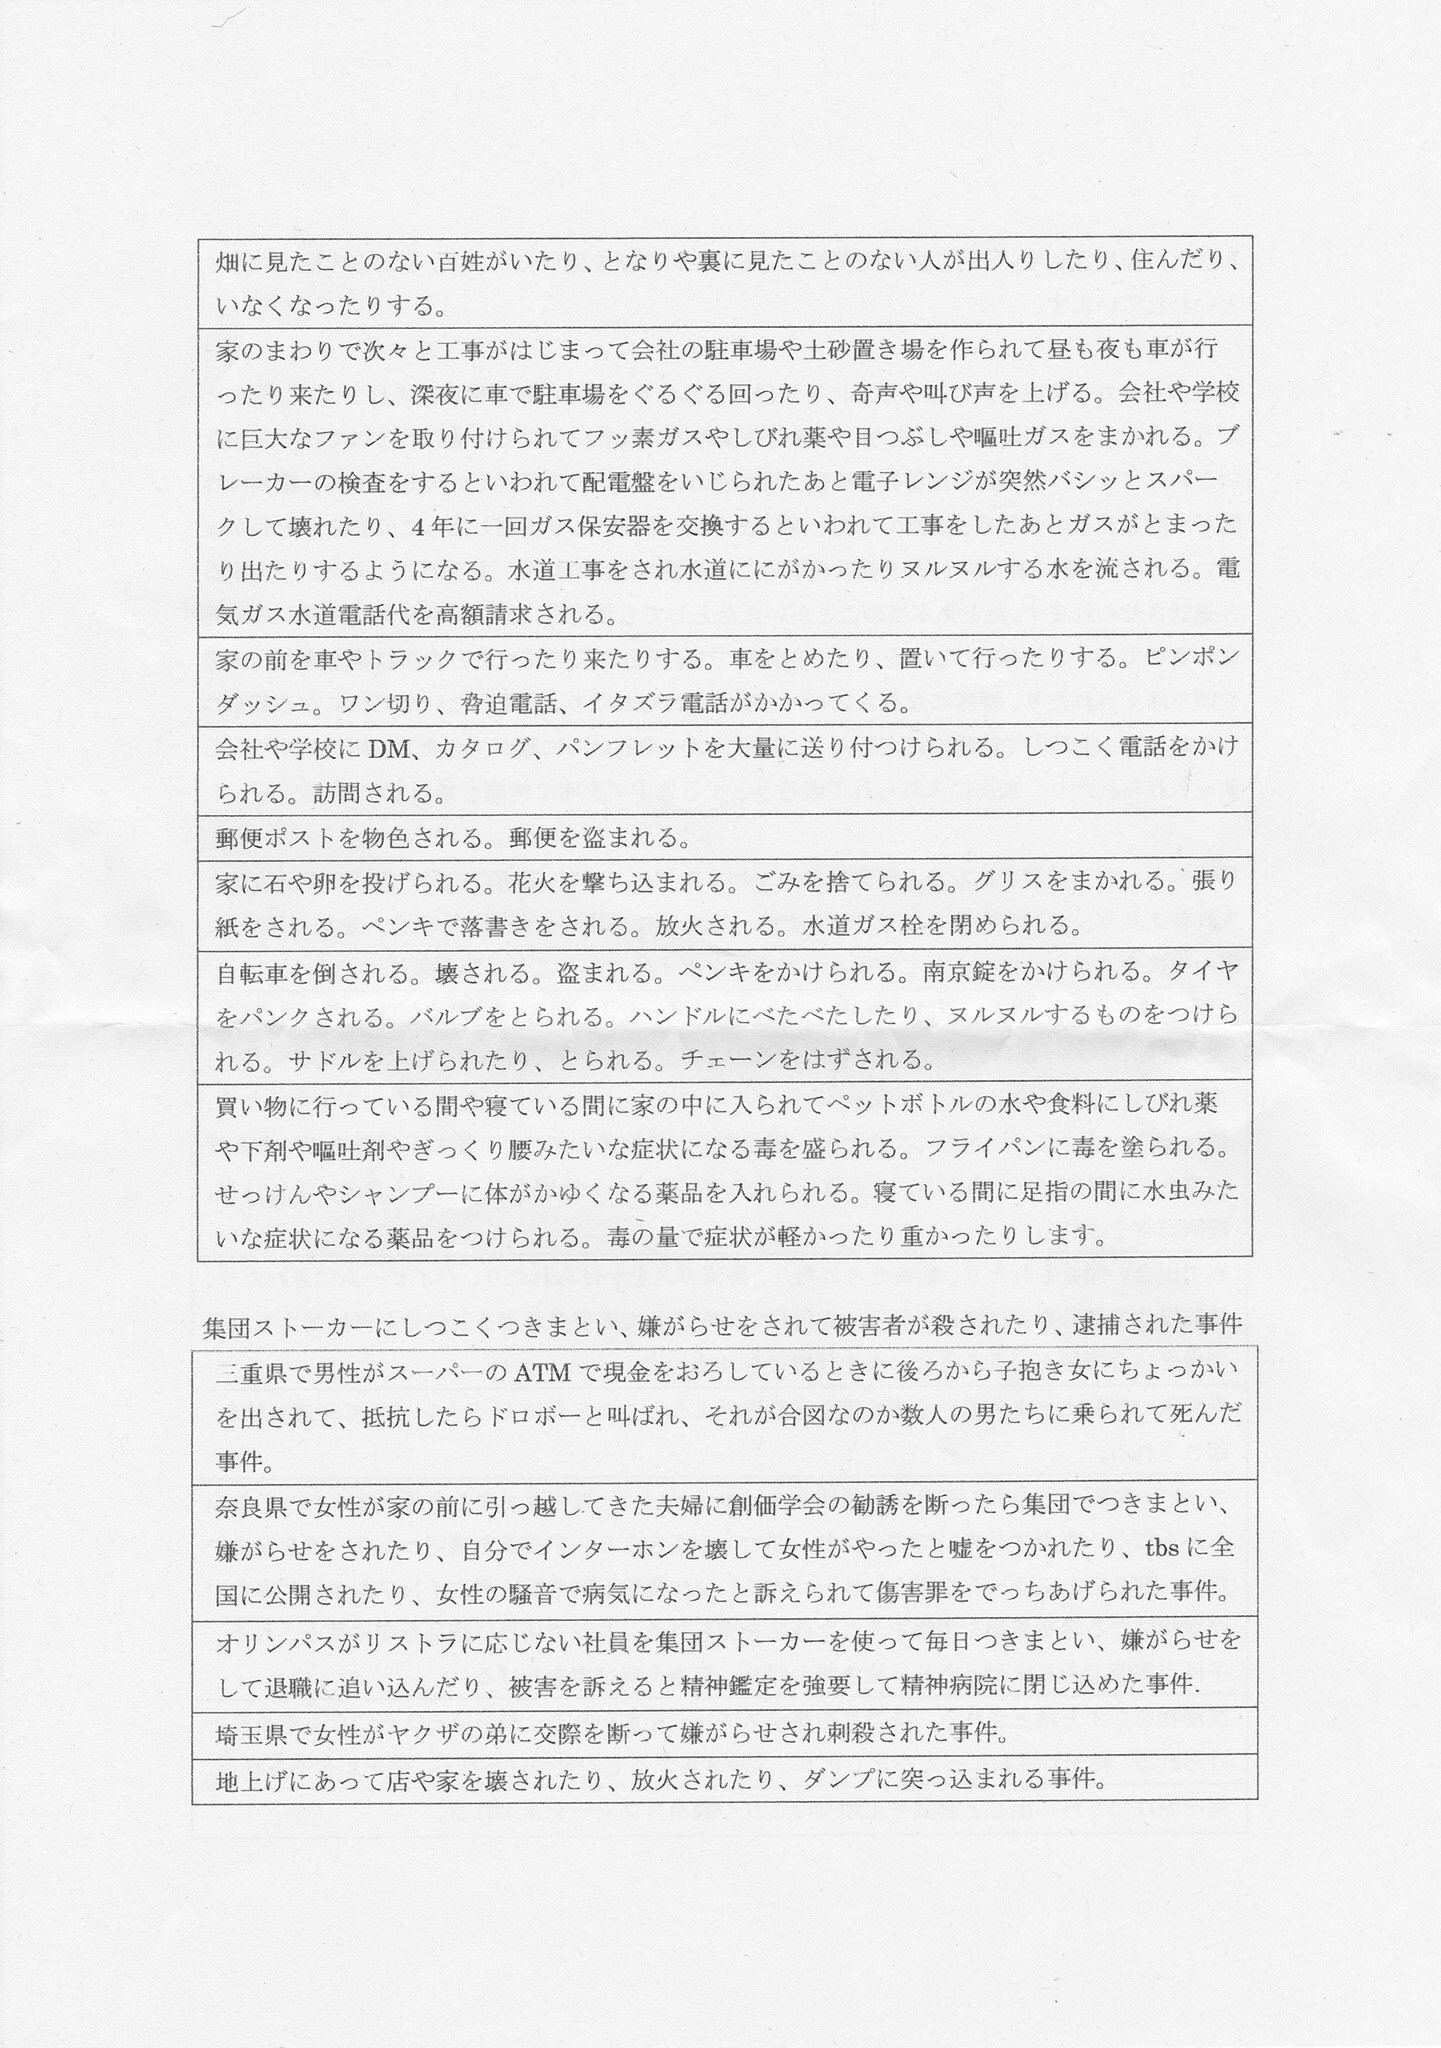 畑に見たことのない百姓がいたり、となりや裏に見たことのない人が出入りしたり、住んだり、
いなくなったりする。
家のまわりで次々と工事がはじまって会社の駐車場や土砂置き場を作られて昼も夜も車が行
ったり来たりし、深夜に車で駐車場をぐるぐる回ったり、奇声や叫び声を上げる。会社や学校
に巨大なファンを取り付けられてフッ素ガスやしびれ薬や目つぶしや嘔吐ガスをまかれる。ブ
レーカーの検査をするといわれて配電盤をいじられたあと電子レンジが突然バシッとスパー
クして壊れたり、4年に一回ガス保安器を交換するといわれて工事をしたあとガスがとまった
り出たりするようになる。水道工事をされ水道ににがかったりヌルヌルする水を流される。電
気ガス水道電話代を高額請求される。
家の前を車やトラックで行ったり来たりする。車をとめたり、置いて行ったりする。ピンポン
ダッシュ。ワン切り、脅迫電話、イタズラ電話がかかってくる。
会社や学校に DM、カタログ、パンフレットを大量に送り付つけられる。しつこく電話をかけ
られる。訪問される。
郵便ポストを物色される。郵便を盗まれる。
家に石や卵を投げられる。花火を撃ち込まれる。ごみを捨てられる。グリスをまかれる。張り
紙をされる。ペンキで落書きをされる。放火される。水道ガス栓を閉められる。
自転車を倒される。壊される。盗まれる。ペンキをかけられる。南京錠をかけられる。タイヤ
をパンクされる。バルブをとられる。ハンドルにべたべたしたり、ヌルヌルするものをつけら
れる。サドルを上げられたり、とられる。チェーンをはずされる。
買い物に行っている間や寝ている間に家の中に入られてペットボトルの水や食料にしびれ薬
や下剤や嘔吐剤やぎっくり腰みたいな症状になる毒を盛られる。フライパンに毒を塗られる。
せっけんやシャンプーに体がかゆくなる薬品を入れられる。寝ている間に足指の間に水虫みた
いな症状になる薬品をつけられる。毒の量で症状が軽かったり重かったりします。
集団ストーカーにしつこくつきまとい、嫌がらせをされて被害者が殺されたり、逮捕された事件
三重県で男性がスーパーの ATM で現金をおろしているときに後ろから子抱き女にちょっかい
を出されて、抵抗したらドロボーと叫ばれ、それが合図なのか数人の男たちに乗られて死んだ
事件。
奈良県で女性が家の前に引っ越してきた夫婦に創価学会の勧誘を断ったら集団でつきまとい、
嫌がらせをされたり、自分でインターホンを壊して女性がやったと嘘をつかれたり、tbs に全
国に公開されたり、女性の騒音で病気になったと訴えられて傷害罪をでっちあげられた事件。
オリンパスがリストラに応じない社員を集団ストーカーを使って毎日つきまとい、嫌がらせを
して退職に追い込んだり、被害を訴えると精神鑑定を強要して精神病院に閉じ込めた事件.
埼玉県で女性がヤクザの弟に交際を断って嫌がらせされ刺殺された事件。
地上げにあって店や家を壊されたり、放火されたり、ダンプに突っ込まれる事件。